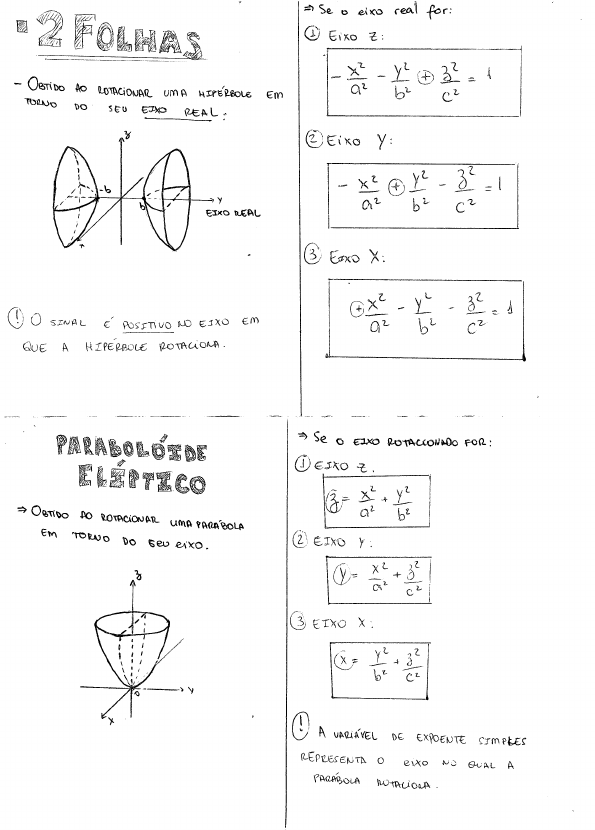 ▪2 FOLHAS
- OBTIDO AO ROTACIONAR UMA HIPÉRBOLE EM
TORNO DO SEU EIXO REAL:
z
-b
b
y
EIXO REAL
x
! O SINAL É POSITIVO NO EIXO EM
QUE A HIPÉRBOLE ROTACIONA.
⇒ Se o eixo real for:
① EIXO Z:
- x²/a² - y²/b² ⊕ z²/c² = 1
② EIXO Y:
- x²/a² ⊕ y²/b² - z²/c² = 1
③ EIXO X:
⊕ x²/a² - y²/b² - z²/c² = 1
PARABOLÓIDE
ELÍPTICO
⇒ OBTIDO AO ROTACIONAR UMA PARÁBOLA
EM TORNO DO SEU EIXO.
z
0
y
x
⇒ Se o EIXO ROTACIONADO FOR:
① EIXO Z.
z = x²/a² + y²/b²
② EIXO Y:
y = x²/a² + z²/c²
③ EIXO X:
x = y²/b² + z²/c²
! A VARIÁVEL DE EXPOENTE SIMPLES
REPRESENTA O EIXO NO QUAL A
PARÁBOLA ROTACIONA.